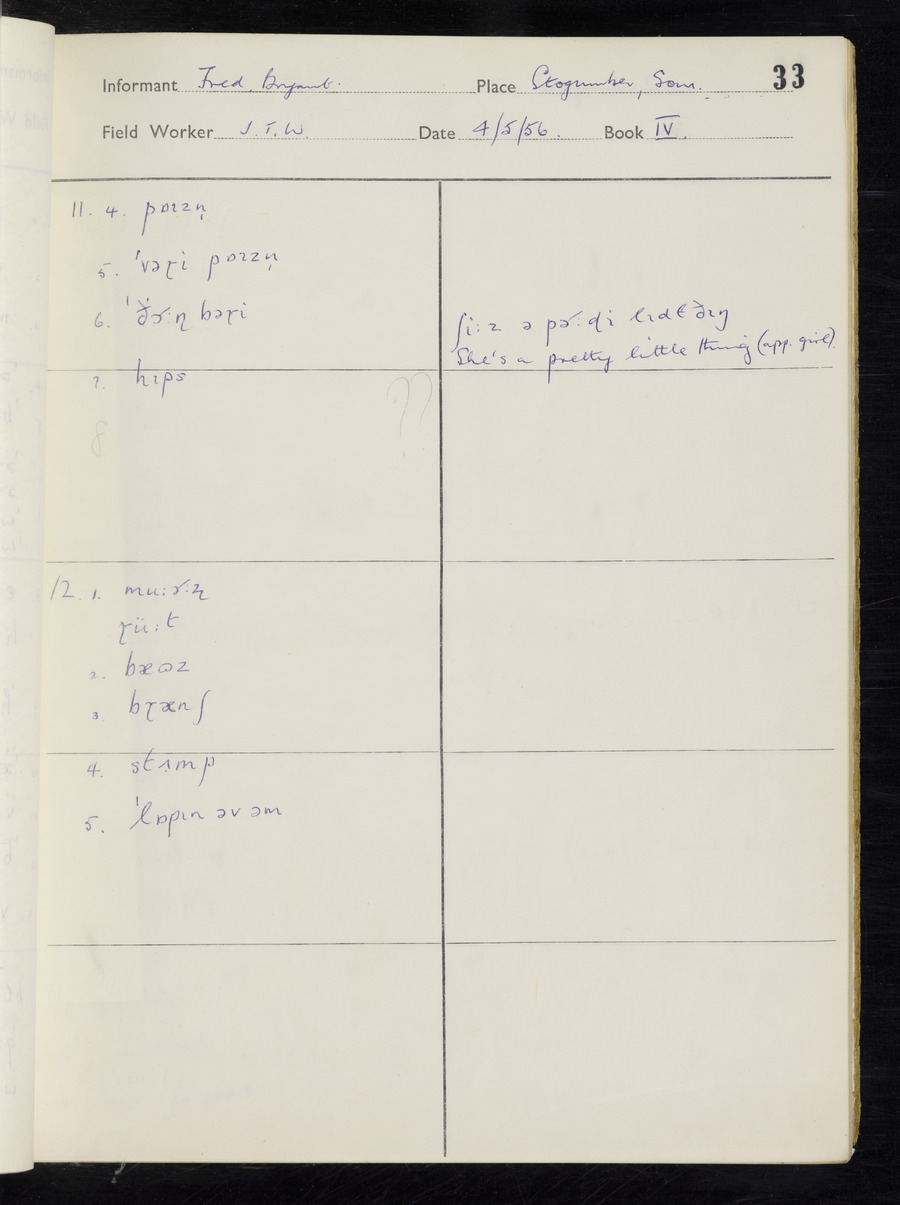 33
Informant Fred. Bryant. Place Stogumber, Som.
Field Worker J. T. W. Date 4/5/56. Book IV.
11. 4. pɒɪzn̩
5. ˈvəɽi pɒɪzn̩
6. bəɽi
ʃi: z ə pɚ:ɖi lɪdɫ ðɪŋ
She's a pretty little thing (app. girl).
7. hɪps
8
??
12. 1.
ɽü:t
2. bæɷz
3. bɽænʃ
4. stʌmp
5. ˈlɒpɪn əv əm